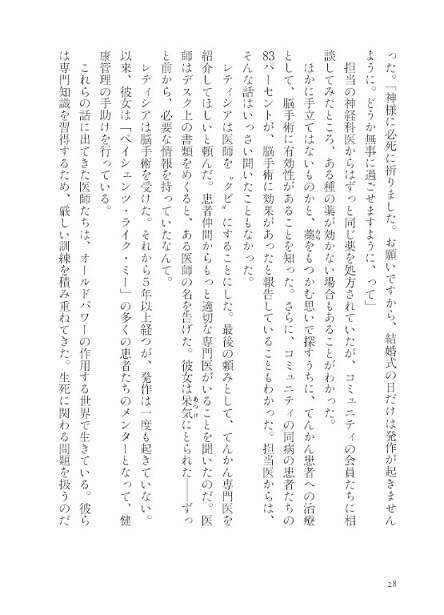 った。「神様に必死に祈りました。お願いですから、結婚式の日だけは発作が起きません
ように。どうか無事に過ごせますように、って」
担当の神経科医からはずっと同じ薬を処方されていたが、コミュニティの会員たちに相
談してみたところ、ある種の薬が効かない場合もあることがわかった。
ほかに手立てはないものかと、藁をもつかむ思いで探すうちに、てんかん患者への治療
として、脳手術に有効性があることを知った。さらに、コミュニティの同病の患者たちの
83パーセントが、脳手術に効果があったと報告していることもわかった。担当医からは、
そんな話はいっさい聞いたこともなかった。
レティシアは医師を〝クビ〟にすることにした。最後の頼みとして、てんかん専門医を
紹介してほしいと頼んだ。患者仲間からもっと適切な専門医がいることを聞いたのだ。医
師はデスク上の書類をめくると、ある医師の名を告げた。彼女は呆気にとられた――ずっ
と前から、必要な情報を持っていたなんて。
レティシアは脳手術を受けた。それから5年以上経つが、発作は一度も起きていない。
以来、彼女は「ペイシェンツ・ライク・ミー」の多くの患者たちのメンターとなって、健
康管理の手助けを行っている。
これらの話に出てきた医師たちは、オールドパワーの作用する世界で生きている。彼ら
は専門知識を習得するため、厳しい訓練を積み重ねてきた。生死に関わる問題を扱うのだ
28